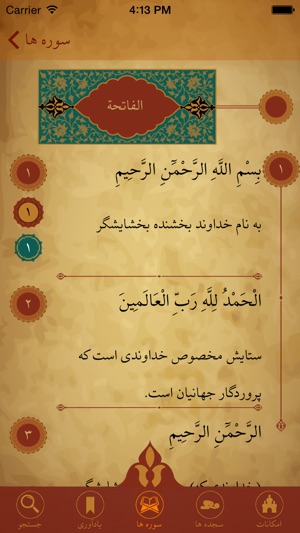 Carrier 4:13 PM
سوره ها
الفاتحة
١
١
بِسْمِ اللَّهِ الرَّحْمَٰنِ الرَّحِيمِ
١
به نام خداوند بخشنده بخشایشگر
١
٢
الْحَمْدُ لِلَّهِ رَبِّ الْعَالَمِينَ
ستایش مخصوص خداوندی است که
پروردگار جهانیان است.
٣
الرَّحْمَٰنِ الرَّحِيمِ
امکانات
سجده ها
سوره ها
یادآوری
جستجو